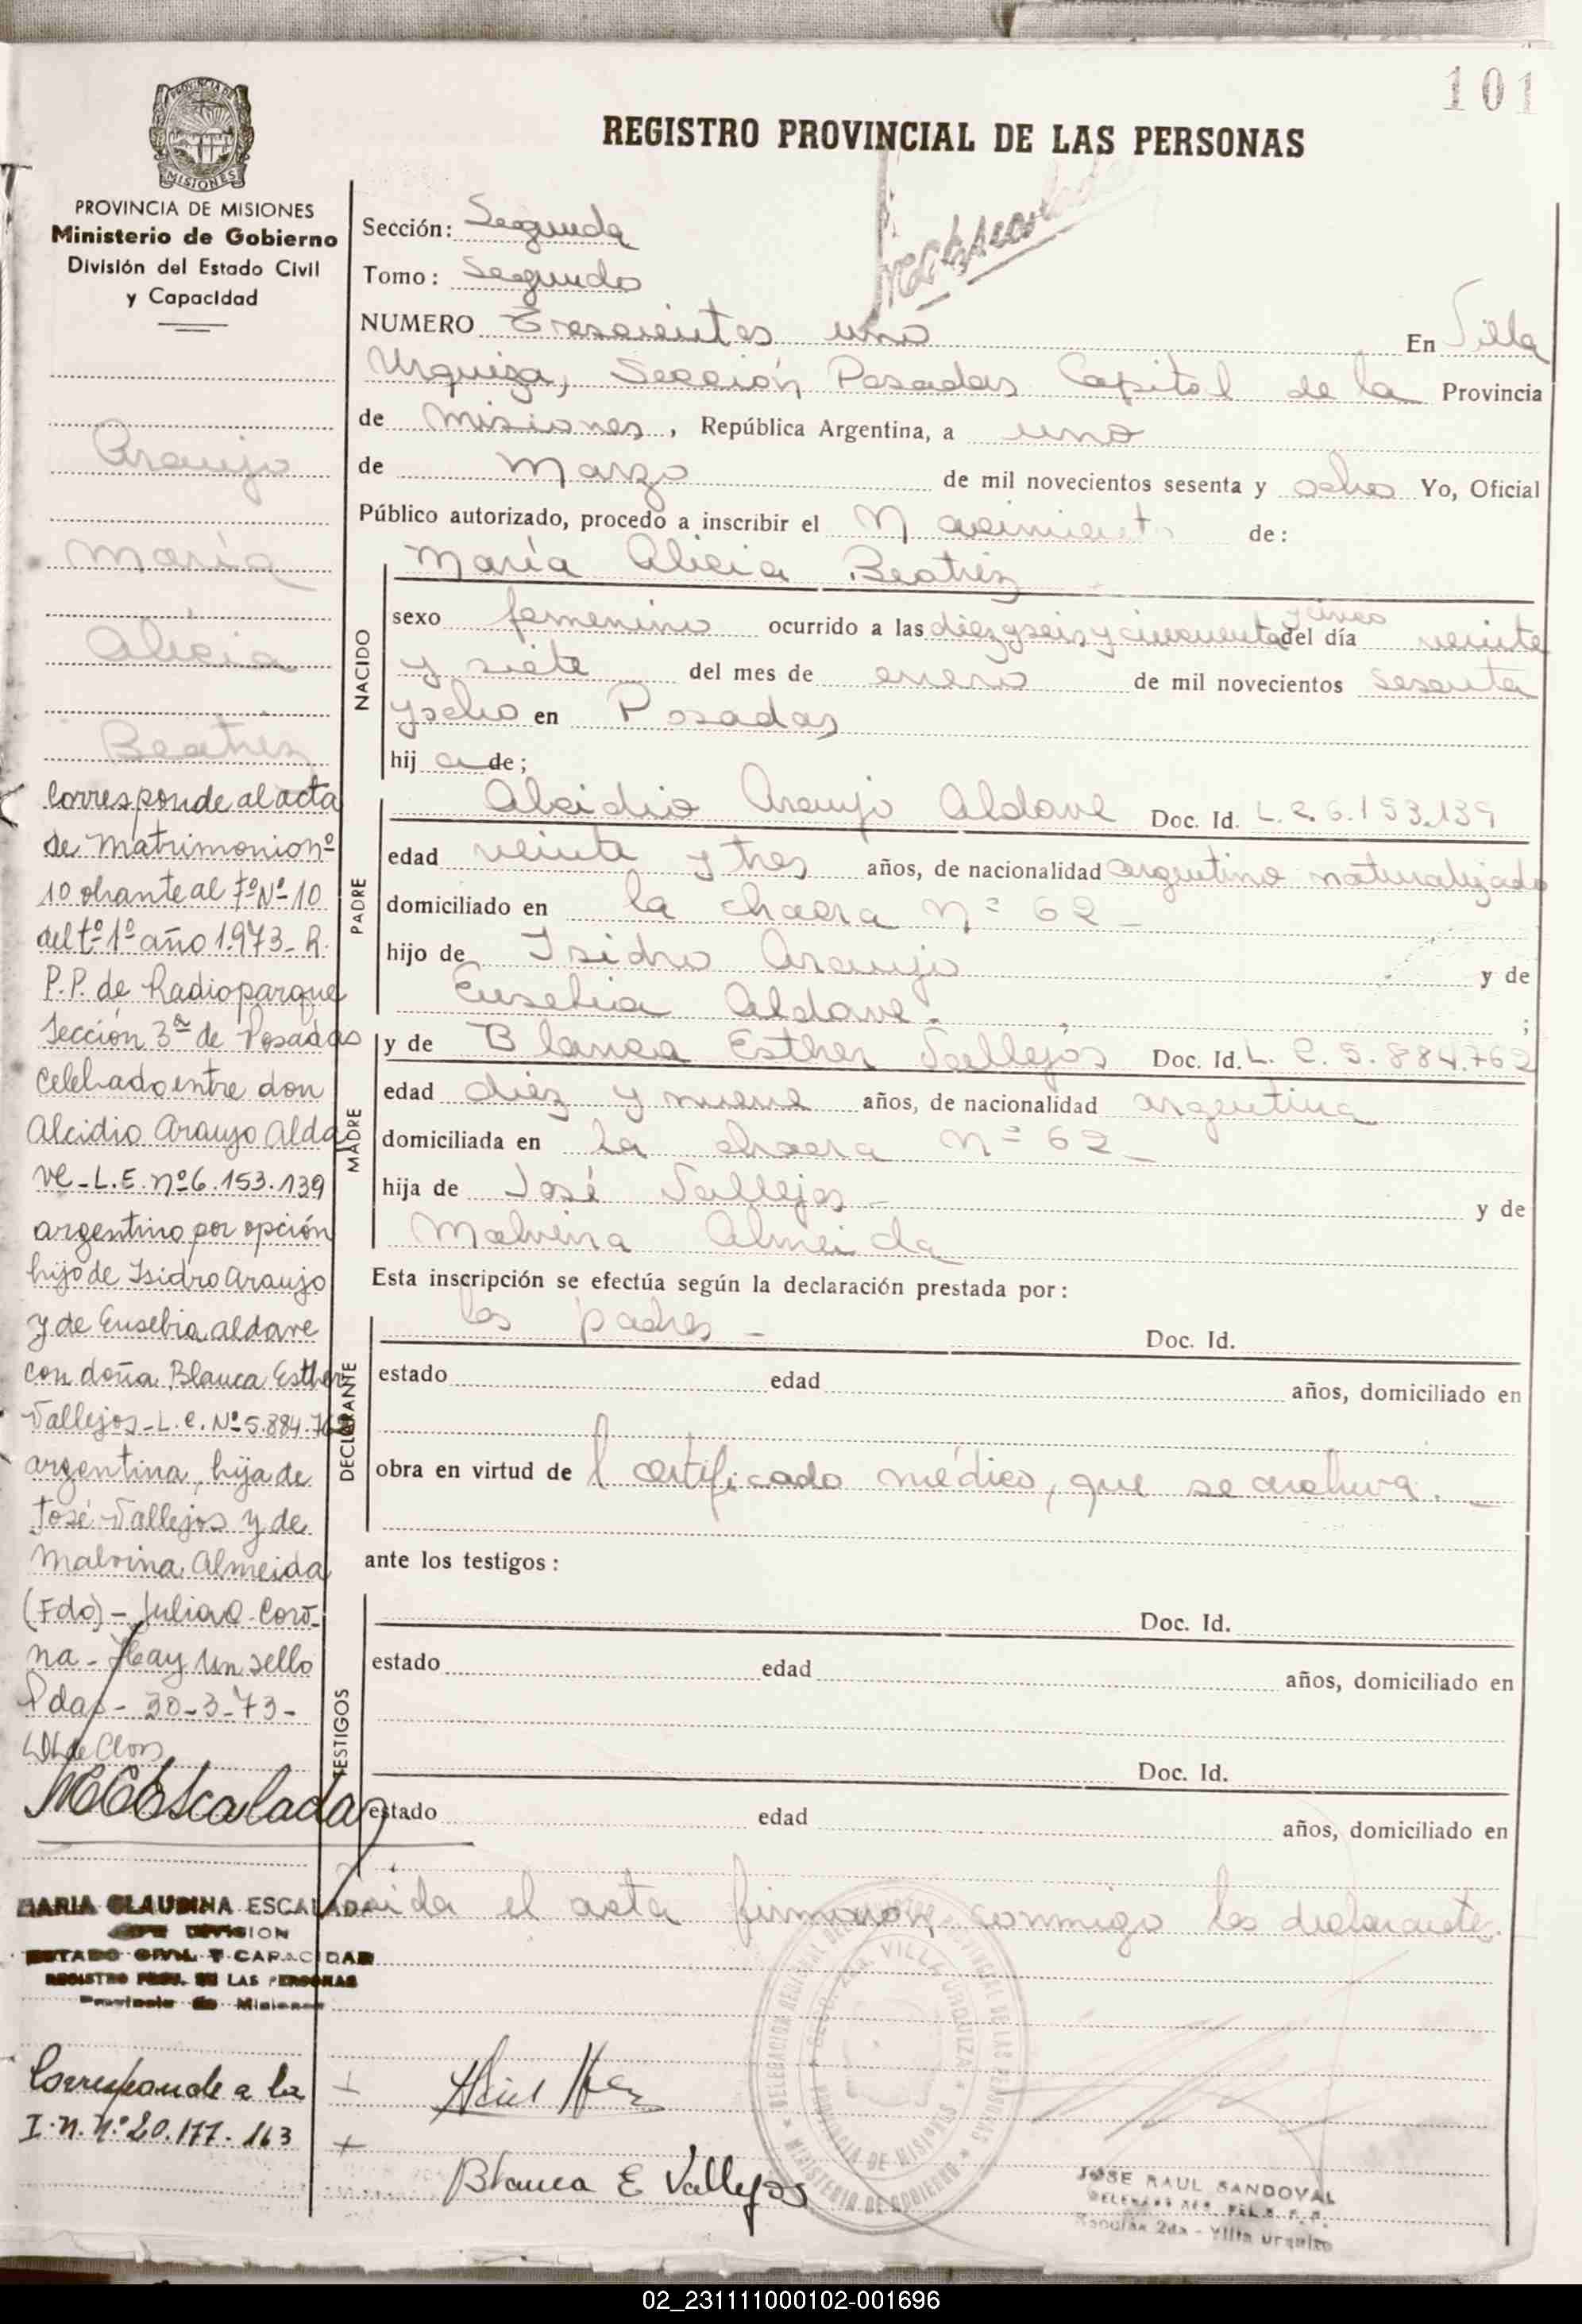 101
REGISTRO PROVINCIAL DE LAS PERSONAS
PROVINCIA DE MISIONES
Ministerio de Gobierno
División del Estado Civil
y Capacidad
Araujo
María
Alicia
Beatriz
Corresponde al acta
de Matrimonio nº
10 obrante al Fº Nº 10
del tº 1º año 1.973- R.
P.P. de Radioparque
Sección 3ª de Posadas
celebrado entre don
Alcidio Araujo Alda
ve - L.E. nº 6.153.139
argentino por opción
hijo de Isidro Araujo
y de Eusebia Aldave
con doña Blanca Esther
Vallejos - L.C. Nº 5.884.762
argentina, hija de
José Vallejos y de
Malvina Almeida
(Fdo) - Julia Coro
na - Hay un sello
Pdas - 30-3-73-
MCEscalada
MARIA CLAUDINA ESCALADA
JEFE DIVISION
ESTADO CIVIL Y CAPACIDAD
REGISTRO PROV. DE LAS PERSONAS
Provincia de Misiones
Corresponde a la
I.N. Nº 20.177.163
Sección: Segunda
Tomo: Segundo
NUMERO Trescientos uno En Villa
Urquiza, Sección Posadas Capital de la Provincia
de Misiones, República Argentina, a uno
de Marzo de mil novecientos sesenta y ocho Yo, Oficial
Público autorizado, procedo a inscribir el Nacimiento de:
María Alicia Beatriz
NACIDO
sexo femenino ocurrido a las diez y seis y cincuenta y cinco del día veinte
y siete del mes de enero de mil novecientos sesenta
y ocho en Posadas
hija de;
PADRE
Alcidio Araujo Aldave Doc. Id. L.E. 6.153.139
edad veinte y tres años, de nacionalidad argentino naturalizado
domiciliado en la chacra nº 62 -
hijo de Isidro Araujo y de
Eusebia Aldave. ;
MADRE
y de Blanca Esther Vallejos Doc. Id. L. C. 5.884.762
edad diez y nueve años, de nacionalidad argentina
domiciliada en la chacra nº 62 -
hija de José Vallejos - y de
Malvina Almeida
Esta inscripción se efectúa según la declaración prestada por:
DECLARANTE
los padres - Doc. Id.
estado edad años, domiciliado en
obra en virtud del certificado médico, que se archiva. -
ante los testigos:
TESTIGOS
Doc. Id.
estado edad años, domiciliado en
Doc. Id.
estado edad años, domiciliado en
Leída el acta firmaron conmigo los declarantes.
DELEGACION REGISTRO PROVINCIAL DE LAS PERSONAS
SECC. 2da. VILLA URQUIZA
PROVINCIA DE MISIONES
MINISTERIO DE GOBIERNO
Blanca E Vallejos
JOSE RAUL SANDOVAL
Sección 2da - Villa Urquiza
02_231111000102-001696